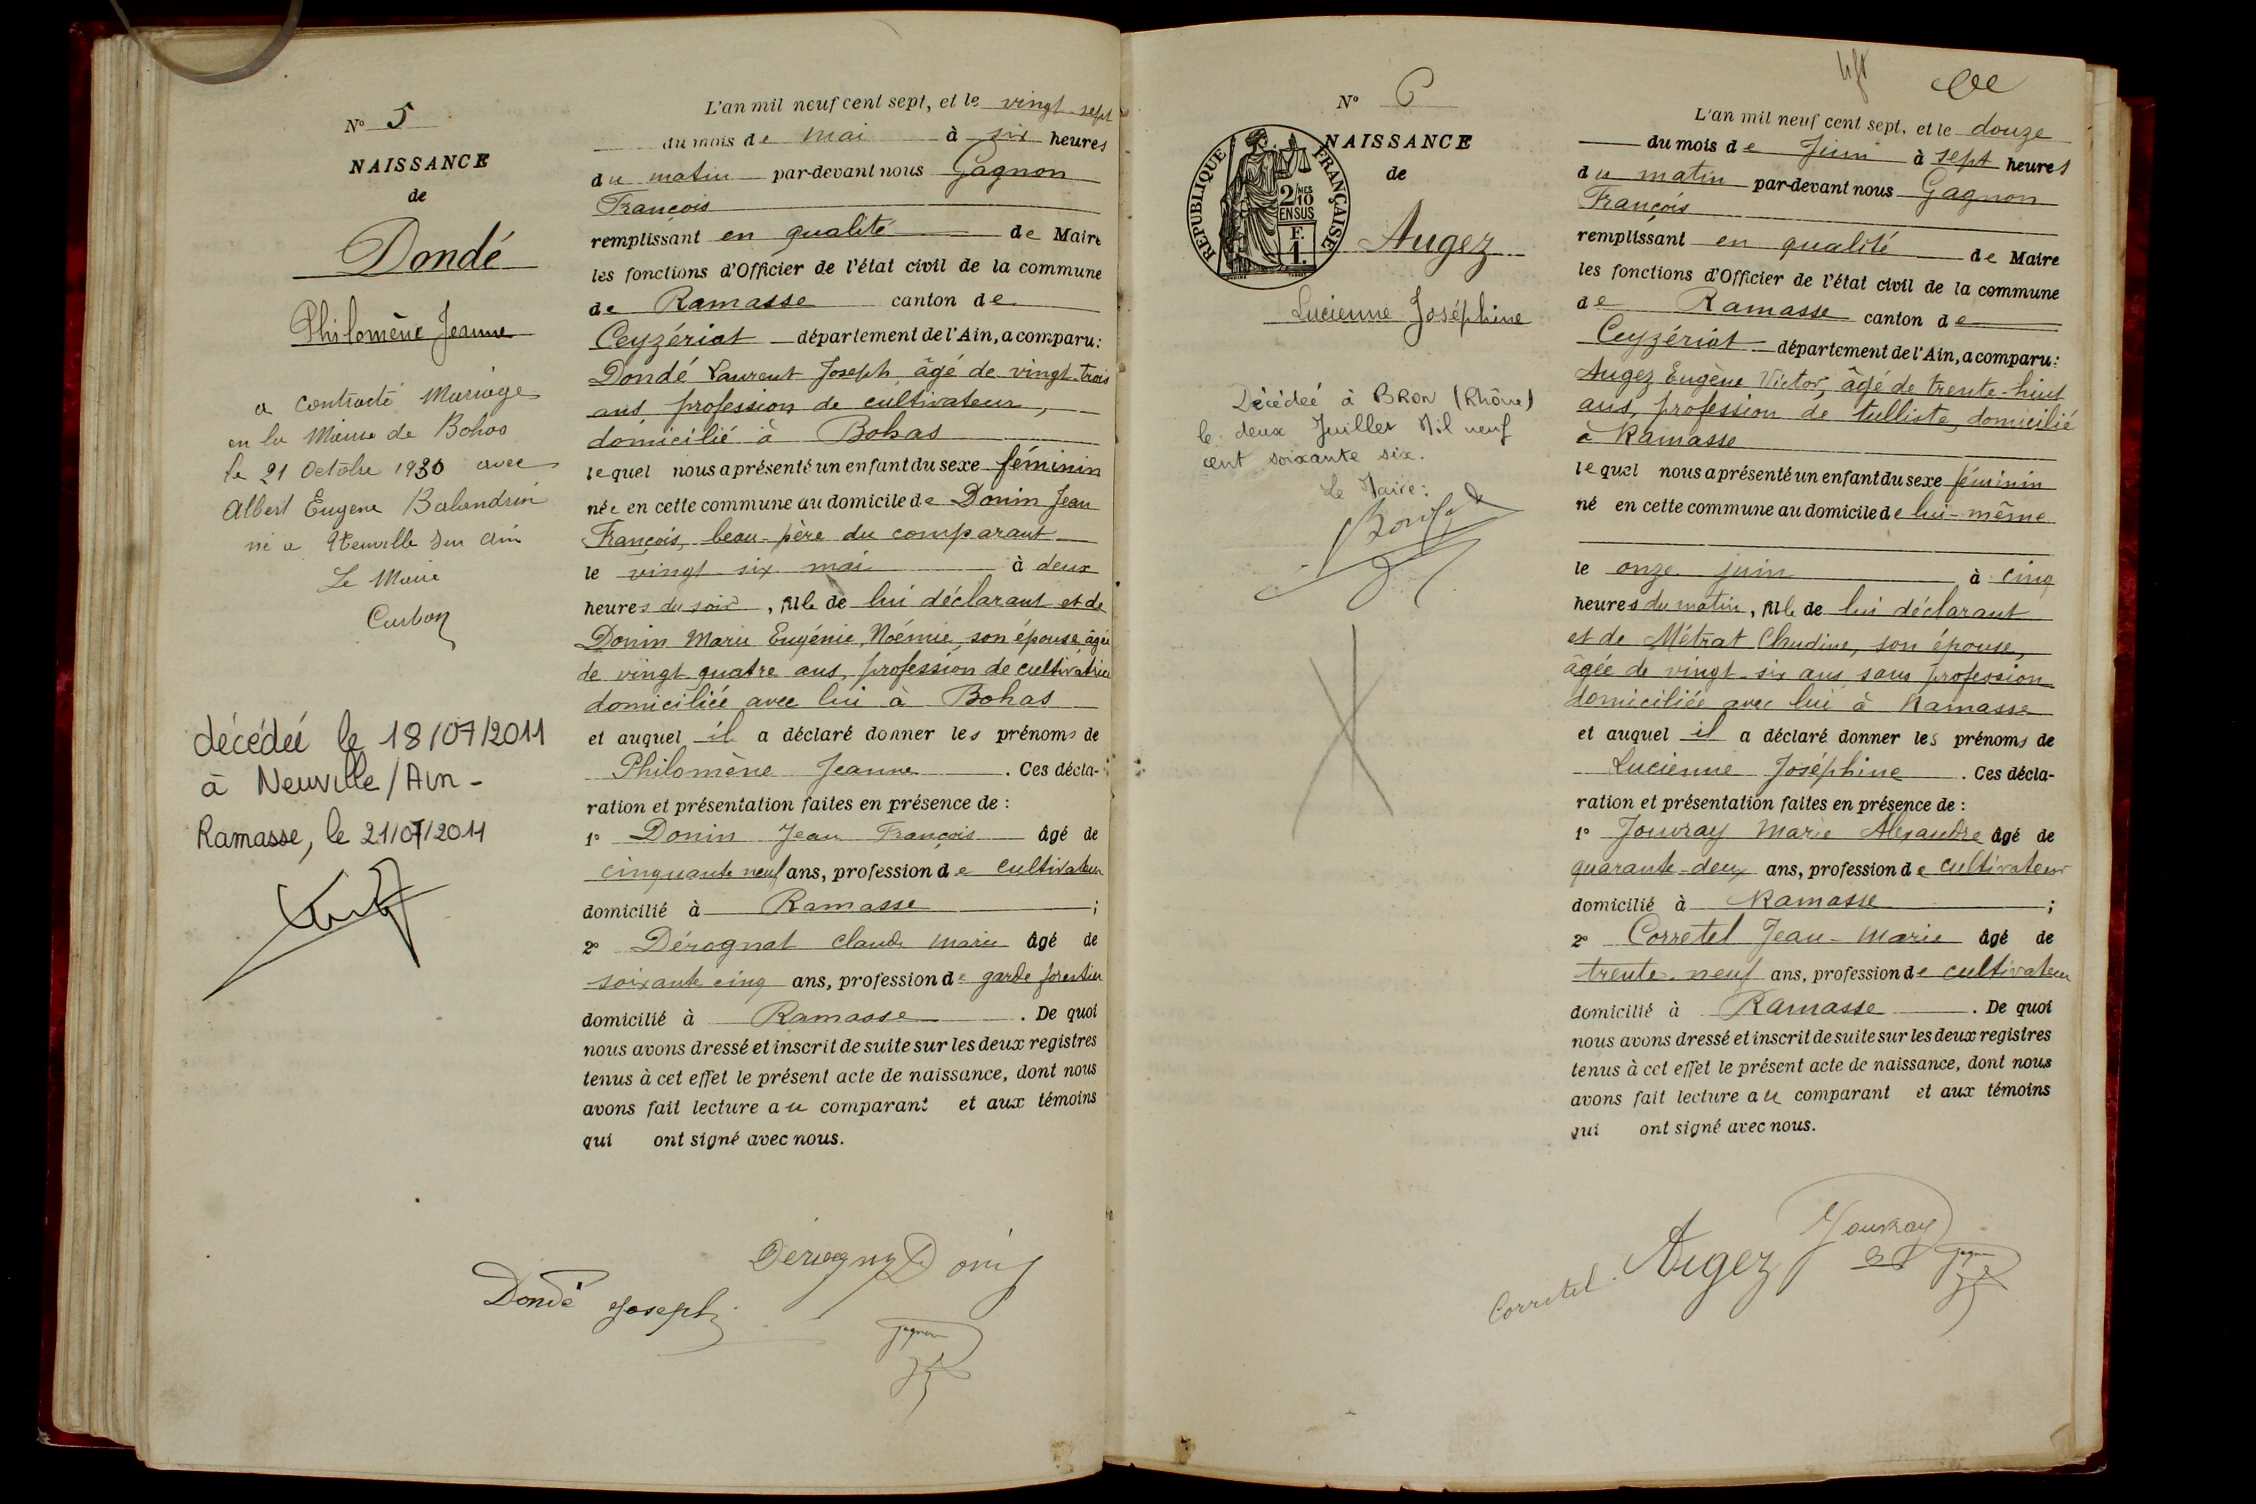 N° 5
NAISSANCE
de
Dondé
Philomène Jeanne
a contracté Mariage
en la Mairie de Bohas
le 21 Octobre 1930 avec
Albert Eugene Balandrin
né a Neuville sur Ain
Le Maire
décédée le 18/07/2011
à Neuville/Ain -
Ramasse, le 21/07/2011
L'an mil neuf cent sept, et le vingt-sept
du mois de Mai à six heures
du matin par-devant nous Gagnon
François
remplissant en qualité de Maire
les fonctions d'Officier de l'état civil de la commune
de Ramasse canton de
Ceyzériat département de l'Ain, a comparu:
Dondé Laurent Joseph, âgé de vingt-trois
ans profession de cultivateur,
domicilié à Bohas
lequel nous a présenté un enfant du sexe féminin
née en cette commune au domicile de Donin Jean
François, beau-père du comparant
le vingt six mai à deux
heures du soir, fille de lui déclarant et de
Donin Marie Eugénie Noémie, son épouse, âgée
de vingt quatre ans, profession de cultivatrice
domiciliée avec lui à Bohas
et auquel il a déclaré donner les prénoms de
Philomène Jeanne. Ces décla-
ration et présentation faites en présence de :
1° Donin Jean François âgé de
cinquante neuf ans, profession de cultivateur
domicilié à Ramasse ;
2° Dérognat Claude Marie âgé de
soixante cinq ans, profession de garde forestier
domicilié à Ramasse. De quoi
nous avons dressé et inscrit de suite sur les deux registres
tenus à cet effet le présent acte de naissance, dont nous
avons fait lecture au comparant et aux témoins
qui ont signé avec nous.
Dérognat Donin
Dondé Joseph
Gagnon
N° 6
NAISSANCE
de
RÉPUBLIQUE FRANÇAISE
2/10 MES
EN SUS
F.
1.
Augez
Lucienne Joséphine
Décédée à BRON (Rhône)
le deux Juillet Mil neuf
cent soixante six.
Le Maire:
L'an mil neuf cent sept, et le douze
du mois de Juin à sept heures
du matin par-devant nous Gagnon
François
remplissant en qualité de Maire
les fonctions d'Officier de l'état civil de la commune
de Ramasse canton de
Ceyzériat département de l'Ain, a comparu:
Augez Eugène Victor, âgé de trente-huit
ans, profession de tulliste, domicilié
à Ramasse
lequel nous a présenté un enfant du sexe féminin
né en cette commune au domicile de lui-même
le onze juin à cinq
heures du matin, fille de lui déclarant
et de Métrat Claudine, son épouse,
âgée de vingt-six ans sans profession
domiciliée avec lui à Ramasse
et auquel il a déclaré donner les prénoms de
Lucienne Joséphine. Ces décla-
ration et présentation faites en présence de :
1° Jouvray Marie Alexandre âgé de
quarante-deux ans, profession de cultivateur
domicilié à Ramasse ;
2° Corretel Jean-Marie âgé de
trente-neuf ans, profession de cultivateur
domicilié à Ramasse. De quoi
nous avons dressé et inscrit de suite sur les deux registres
tenus à cet effet le présent acte de naissance, dont nous
avons fait lecture au comparant et aux témoins
qui ont signé avec nous.
Jouvray
Corretel Augez Gagnon